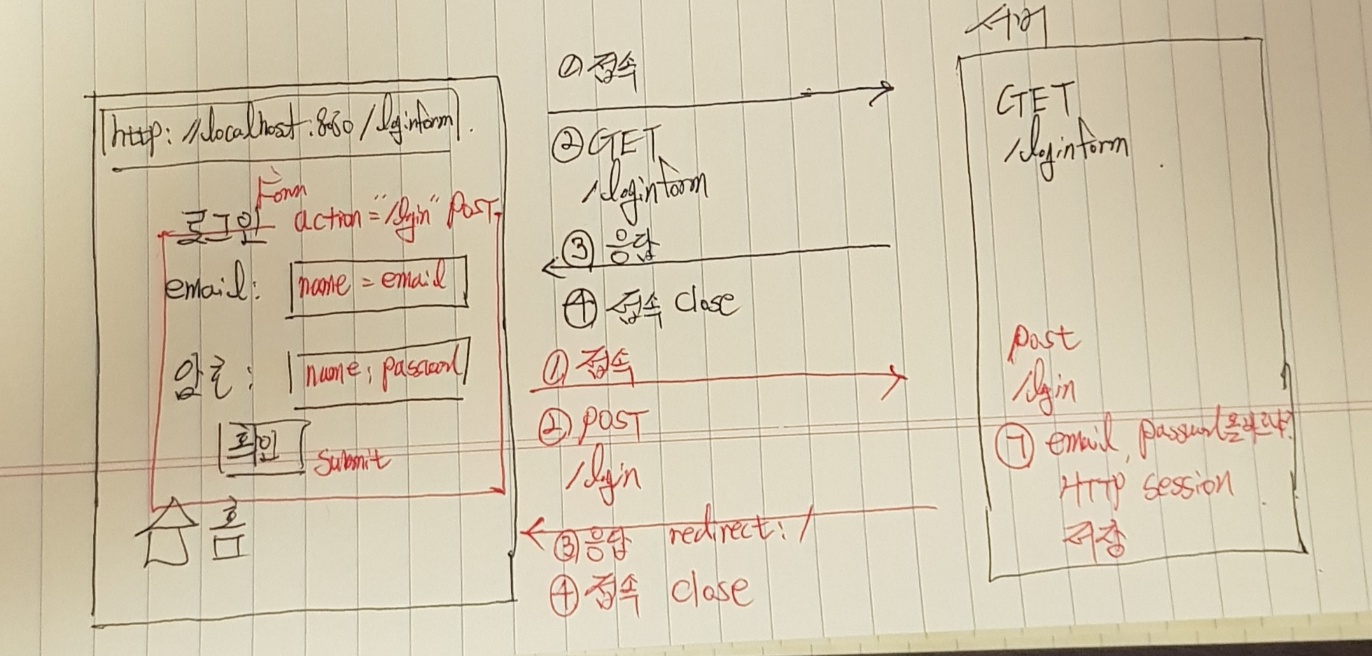 http://localhost:8080/loginform
로그인
Form
action="/login" POST
email:
name = email
암호:
name: password
확인
submit
홈
① 접속
② GET
/loginform
③ 응답
④ 접속 close
① 접속
② POST
/login
③ 응답 redirect: /
④ 접속 close
서버
GET
/loginform
post
/login
email, password
HTTP session
저장